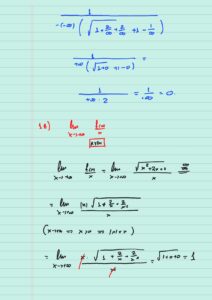 1
-(-∞) (√1+2/∞+2/∞ +1-1/∞)
1
+∞ (√1+0 +1-0) =
1
+∞·2 = 1/+∞ = 0.
lim
x→+∞ f(x)/x
lim x→+∞ f(x)/x = lim x→+∞ √x²+2x+2 / x
= lim x→+∞ |x| √1+2/x+2/x² / x
(x→+∞ ⇒ x>0 ⇒ |x|=x)
= lim x→+∞ x √1+2/x+2/x² / x = √1+0+0 = 1